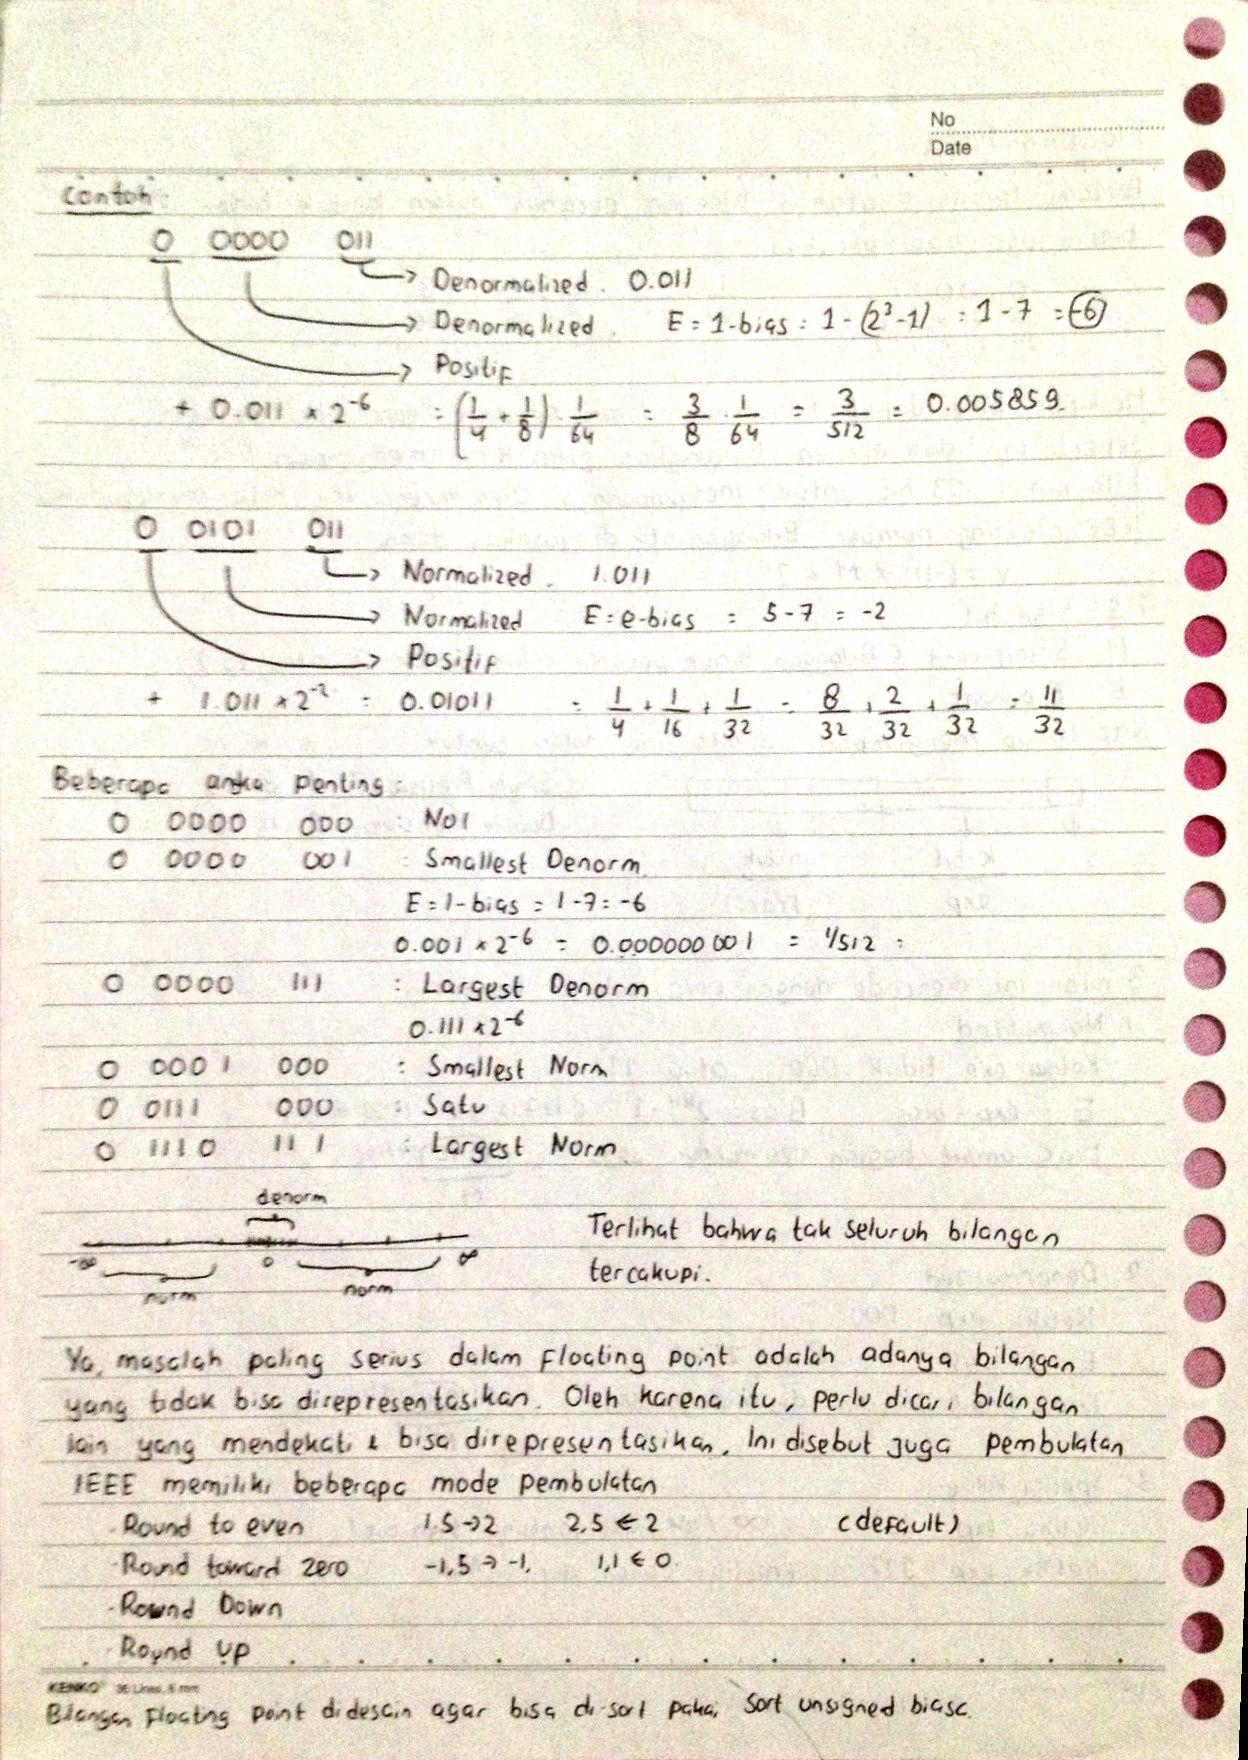 No
Date
Contoh:
0 0000 011
Denormalized. 0.011
Denormalized. E = 1-bias = 1 - (2³-1) = 1-7 = -6
Positif
+ 0.011 × 2⁻⁶ = (1/4 + 1/8) . 1/64 = 3/8 . 1/64 = 3/512 = 0.005859
0 0101 011
Normalized. 1.011
Normalized E = e-bias = 5-7 = -2
Positif
+ 1.011 × 2⁻² = 0.01011 = 1/4 + 1/16 + 1/32 = 8/32 + 2/32 + 1/32 = 11/32
Beberapa angka penting:
0 0000 000 : Nol
0 0000 001 : Smallest Denorm.
E = 1-bias = 1-7 = -6
0.001 × 2⁻⁶ = 0.000000001 = 1/512 =
0 0000 111 : Largest Denorm
0.111 × 2⁻⁶
0 0001 000 : Smallest Norm
0 0111 000 : Satu
0 1110 111 : Largest Norm.
denorm
-∞ 0 ∞
norm norm
Terlihat bahwa tak seluruh bilangan
tercakupi.
Ya, masalah paling serius dalam Floating point adalah adanya bilangan
yang tidak bisa direpresentasikan. Oleh karena itu, perlu dicari bilangan
lain yang mendekati & bisa direpresentasikan. Ini disebut juga pembulatan
IEEE memiliki beberapa mode pembulatan
- Round to even 1.5 → 2 2,5 ← 2 (default)
- Round toward zero -1,5 → -1, 1,1 ← 0.
- Round Down
- Round up
KENKO 36 Lines, 6 mm
Bilangan Floating point didesain agar bisa di-sort pakai sort unsigned biasa.